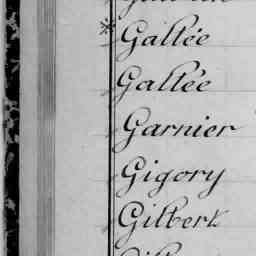 Gallée
Gallée
Garnier
Gigory
Gilbert